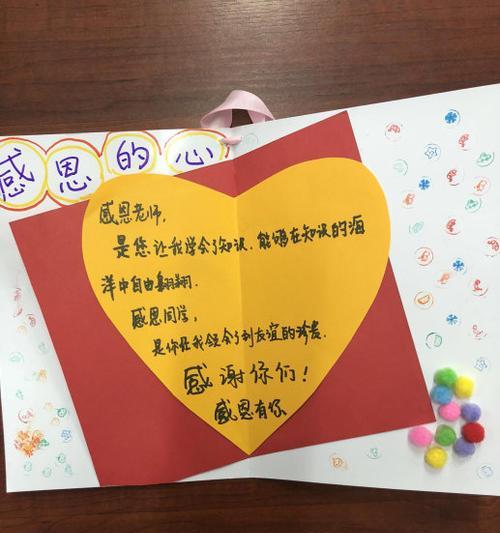 感恩的心
感恩老师,
是您让我学会了知识,能够在知识的海
洋中自由翱翔.
感恩同学,
是你让我领会了到友谊的珍贵.
感谢你们!
感恩有你